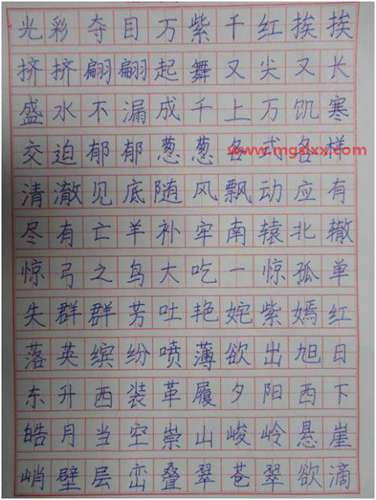 光彩夺目万紫千红挨挨
挤挤翩翩起舞又尖又长
盛水不漏成千上万饥寒
交迫郁郁葱葱各式各样
www.mgaxx.com
清澈见底随风飘动应有
尽有亡羊补牢南辕北辙
惊弓之鸟大吃一惊孤单
失群群芳吐艳姹紫嫣红
落英缤纷喷薄欲出旭日
东升西装革履夕阳西下
皓月当空崇山峻岭悬崖
峭壁层峦叠翠苍翠欲滴